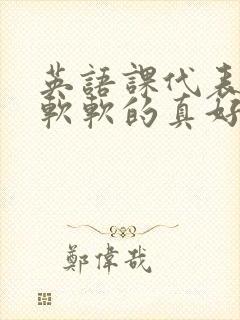 英語課代表
軟軟的真好
鄭偉哉